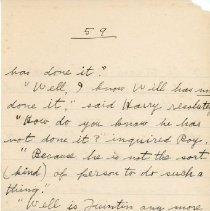 59
has done it."
"Well, I know Will has no
done it," said Harry resolute
"How do you know he has
not done it? inquired Roy.
"Because he is not the sort
(kind) of person to do such a
thing."
"Well is any more